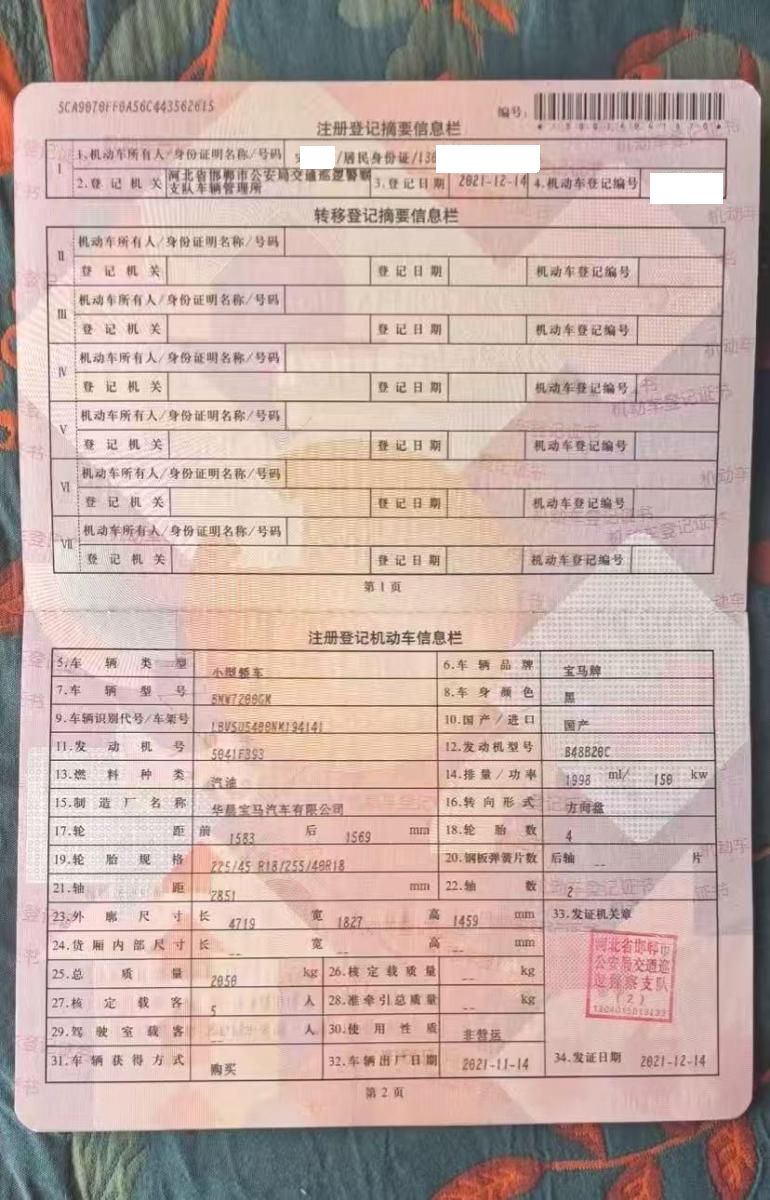 5CA9070FF0A56C443562615
编号:
注册登记摘要信息栏
I 1.机动车所有人/身份证明名称/号码 /居民身份证/130
2.登记机关 河北省邯郸市公安局交通巡逻警察支队车辆管理所 3.登记日期 2021-12-14 4.机动车登记编号
转移登记摘要信息栏
II 机动车所有人/身份证明名称/号码
登记机关 登记日期 机动车登记编号
III 机动车所有人/身份证明名称/号码
登记机关 登记日期 机动车登记编号
IV 机动车所有人/身份证明名称/号码
登记机关 登记日期 机动车登记编号
V 机动车所有人/身份证明名称/号码
登记机关 登记日期 机动车登记编号
VI 机动车所有人/身份证明名称/号码
登记机关 登记日期 机动车登记编号
VII 机动车所有人/身份证明名称/号码
登记机关 登记日期 机动车登记编号
第1页
注册登记机动车信息栏
5.车辆类型 小型轿车 6.车辆品牌 宝马牌
7.车辆型号 BMW7200GK 8.车身颜色 黑
9.车辆识别代号/车架号 LBV5U5400NM194141 10.国产/进口 国产
11.发动机号 5041F393 12.发动机型号 B48B20C
13.燃料种类 汽油 14.排量/功率 1998 ml/ 150 kw
15.制造厂名称 华晨宝马汽车有限公司 16.转向形式 方向盘
17.轮距 前 1583 后 1569 mm 18.轮胎数 4
19.轮胎规格 225/45 R18/255/40R18 20.钢板弹簧片数 后轴 -- 片
21.轴距 2851 mm 22.轴数 2
23.外廓尺寸 长 4719 宽 1827 高 1459 mm 33.发证机关章
24.货厢内部尺寸 长 -- 宽 -- 高 -- mm
河北省邯郸市
公安局交通巡
逻警察支队
(2)
25.总质量 2050 kg 26.核定载质量 -- kg
27.核定载客 5 人 28.准牵引总质量 -- kg
29.驾驶室载客 -- 人 30.使用性质 非营运
31.车辆获得方式 购买 32.车辆出厂日期 2021-11-14 34.发证日期 2021-12-14
第2页